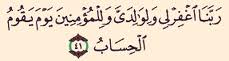 رَبَّنَا ٱغْفِرْ لِى وَلِوَٰلِدَىَّ وَلِلْمُؤْمِنِينَ يَوْمَ يَقُومُ
ٱلْحِسَابُ ٤١